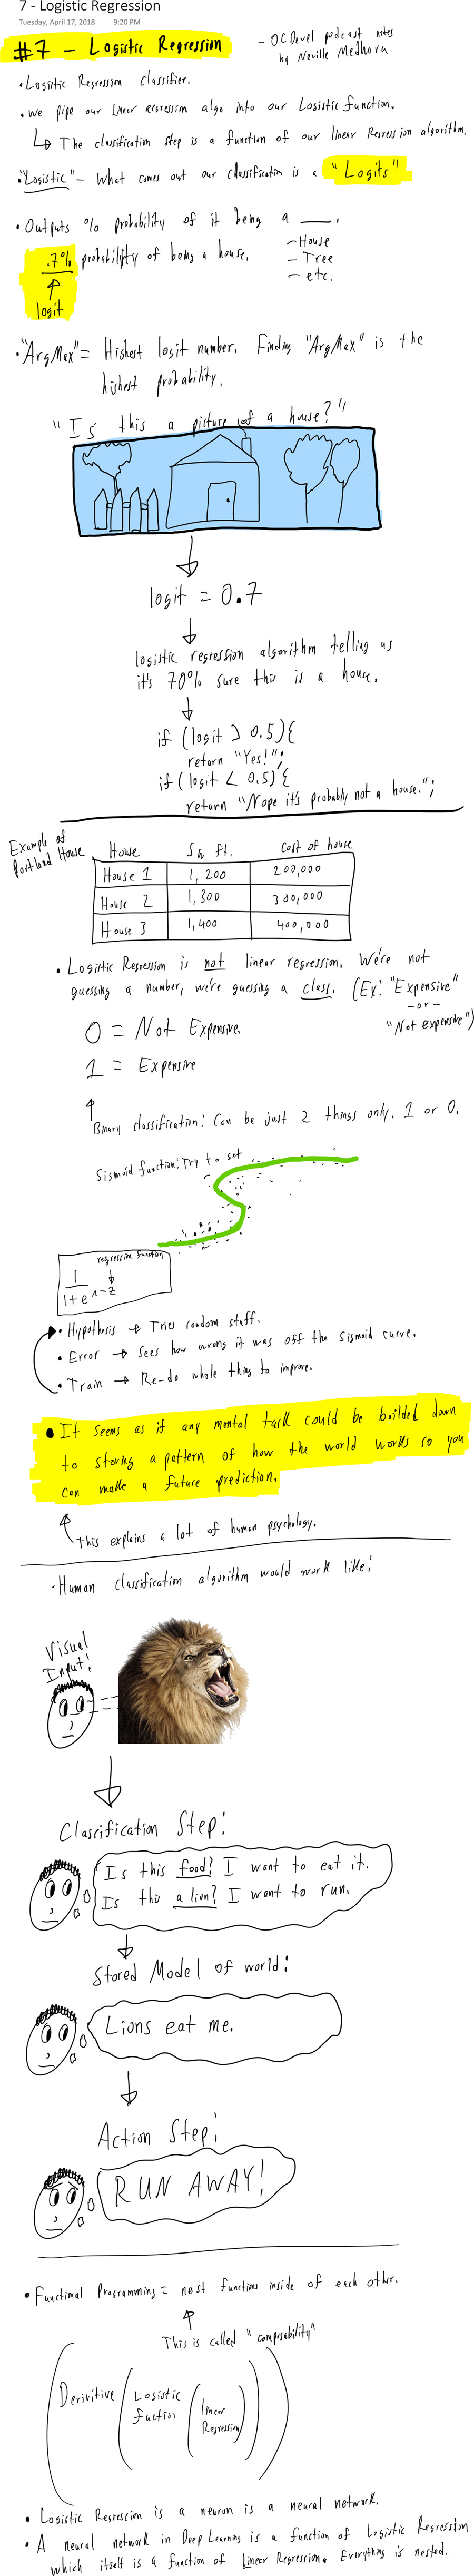 7 - Logistic Regression
Tuesday, April 17, 2018 9:20 PM
#7 - Logistic Regression
- OCDevel podcast notes
by Neville Medhora
• Logistic Regression classifier.
• We pipe our linear regression algo into our Logistic function.
↳ The classification step is a function of our linear Regression algorithm.
• "Logistic" - What comes out our classification is a "Logits"
• Outputs % probability of it being a ___.
- House
- Tree
- etc.
.7% probability of being a house.
↑
logit
• "ArgMax" = Highest logit number. Finding "ArgMax" is the
highest probability.
"Is this a picture of a house?"
logit = 0.7
logistic regression algorithm telling us
it's 70% sure this is a house.
if (logit > 0.5){
return "Yes!";
if (logit < 0.5){
return "Nope it's probably not a house.";
Example of
Portland House
House Sq ft. Cost of house
House 1 1,200 200,000
House 2 1,300 300,000
House 3 1,400 400,000
• Logistic Regression is not linear regression. We're not
guessing a number, we're guessing a class. (Ex: "Expensive"
-or-
"Not expensive")
0 = Not Expensive.
1 = Expensive
↑
Binary classification: Can be just 2 things only. 1 or 0.
Sismoid function: Try to set
regression function
1
1+e^-z
• Hypothesis → Tries random stuff.
• Error → sees how wrong it was off the sismoid curve.
• Train → Re-do whole thing to improve.
• It seems as if any mental task could be boilded down
to storing a pattern of how the world works so you
can make a future prediction.
↑ This explains a lot of human psychology.
• Human classification algorithm would work like:
Visual
Input:
Classification Step:
Is this food? I want to eat it.
Is this a lion? I want to run.
Stored Model of world:
Lions eat me.
Action Step:
RUN AWAY!
• Functional Programming = nest functions inside of each other.
↑
This is called "composability"
(Derivitive (Logistic
fuction (linear
Regression)))
• Logistic Regression is a neuron is a neural network.
• A neural network in Deep Learning is a function of Logistic Regression
which itself is a function of Linear Regression. Everything is nested.